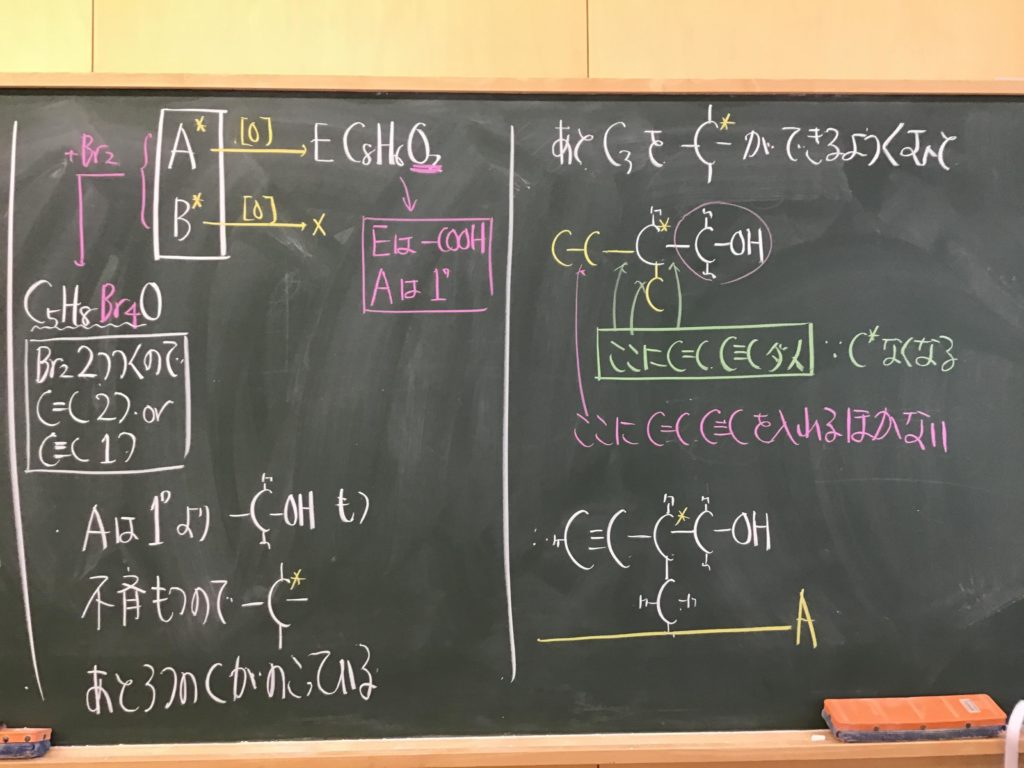 +Br2
A* [O] → E C5H6O2
B* [O] → ×
Eは-COOH
Aは1°
C5H8Br4O
Br2 2つつくので
C=C 2つ or
C≡C 1つ
Aは1°より -C-OH もつ
H
H
不斉もつので -C*-
あと3つのCがのこっている
あと C3 を -C*- ができるようくなんと
H H
C-C-C*-C-OH
C H
ここにC=C C≡Cダメ ∵ C*なくなる
ここにC=C C≡Cを入れるほかない
H H
∴ H-C≡C-C*-C-OH
H
H-C-H
A